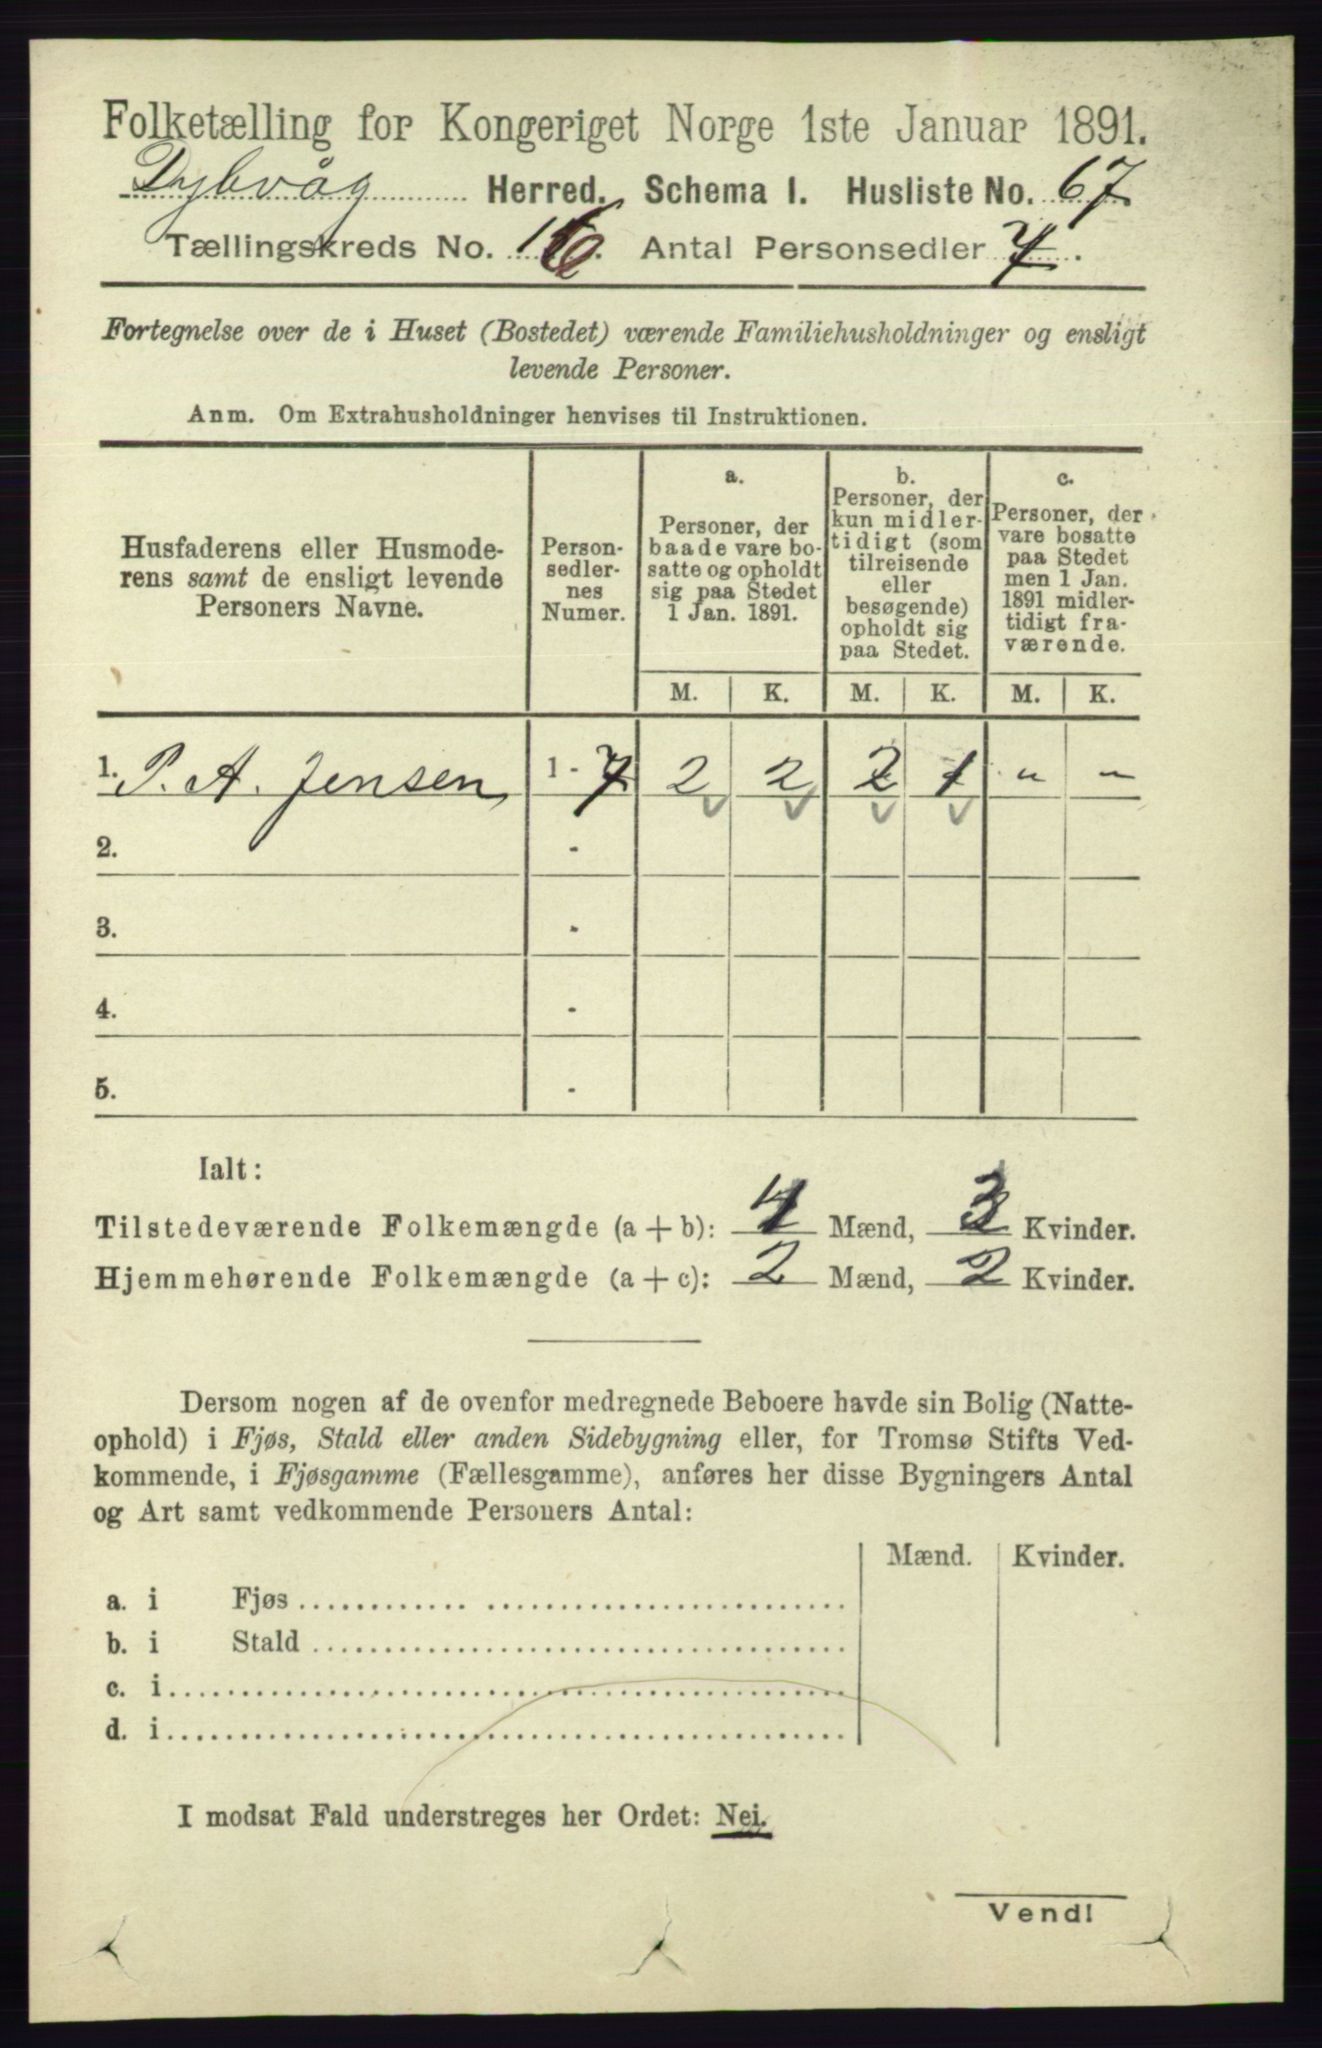 Folketælling for Kongeriget Norge 1ste Januar 1891.
Dybvåg Herred. Schema I. Husliste No. 67
Tællingskreds No. 16. Antal Personsedler 7.
Fortegnelse over de i Huset (Bostedet) værende Familiehusholdninger og ensligt
levende Personer.
Anm. Om Extrahusholdninger henvises til Instruktionen.
Husfaderens eller Husmode-
rens samt de ensligt levende
Personers Navne.
Person-
sedler-
nes
Numer.
a.
Personer, der
baade vare bo-
satte og opholdt
sig paa Stedet
1 Jan. 1891.
b.
Personer, der
kun midler-
tidigt (som
tilreisende
eller
besøgende)
opholdt sig
paa Stedet.
c.
Personer, der
vare bosatte
paa Stedet
men 1 Jan.
1891 midler-
tidigt fra-
værende.
M. K. M. K. M. K.
1. P. A. Jensen 1 - 7 2 2 2 1 „ „
2. -
3. -
4. -
5. -
Ialt:
Tilstedeværende Folkemængde (a + b): 4 Mænd, 3 Kvinder.
Hjemmehørende Folkemængde (a + c): 2 Mænd, 2 Kvinder.
Dersom nogen af de ovenfor medregnede Beboere havde sin Bolig (Natte-
ophold) i Fjøs, Stald eller anden Sidebygning eller, for Tromsø Stifts Ved-
kommende, i Fjøsgamme (Fællesgamme), anføres her disse Bygningers Antal
og Art samt vedkommende Personers Antal:
Mænd. Kvinder.
a. i Fjøs
b. i Stald
c. i
d. i
I modsat Fald understreges her Ordet: Nei.
Vend!